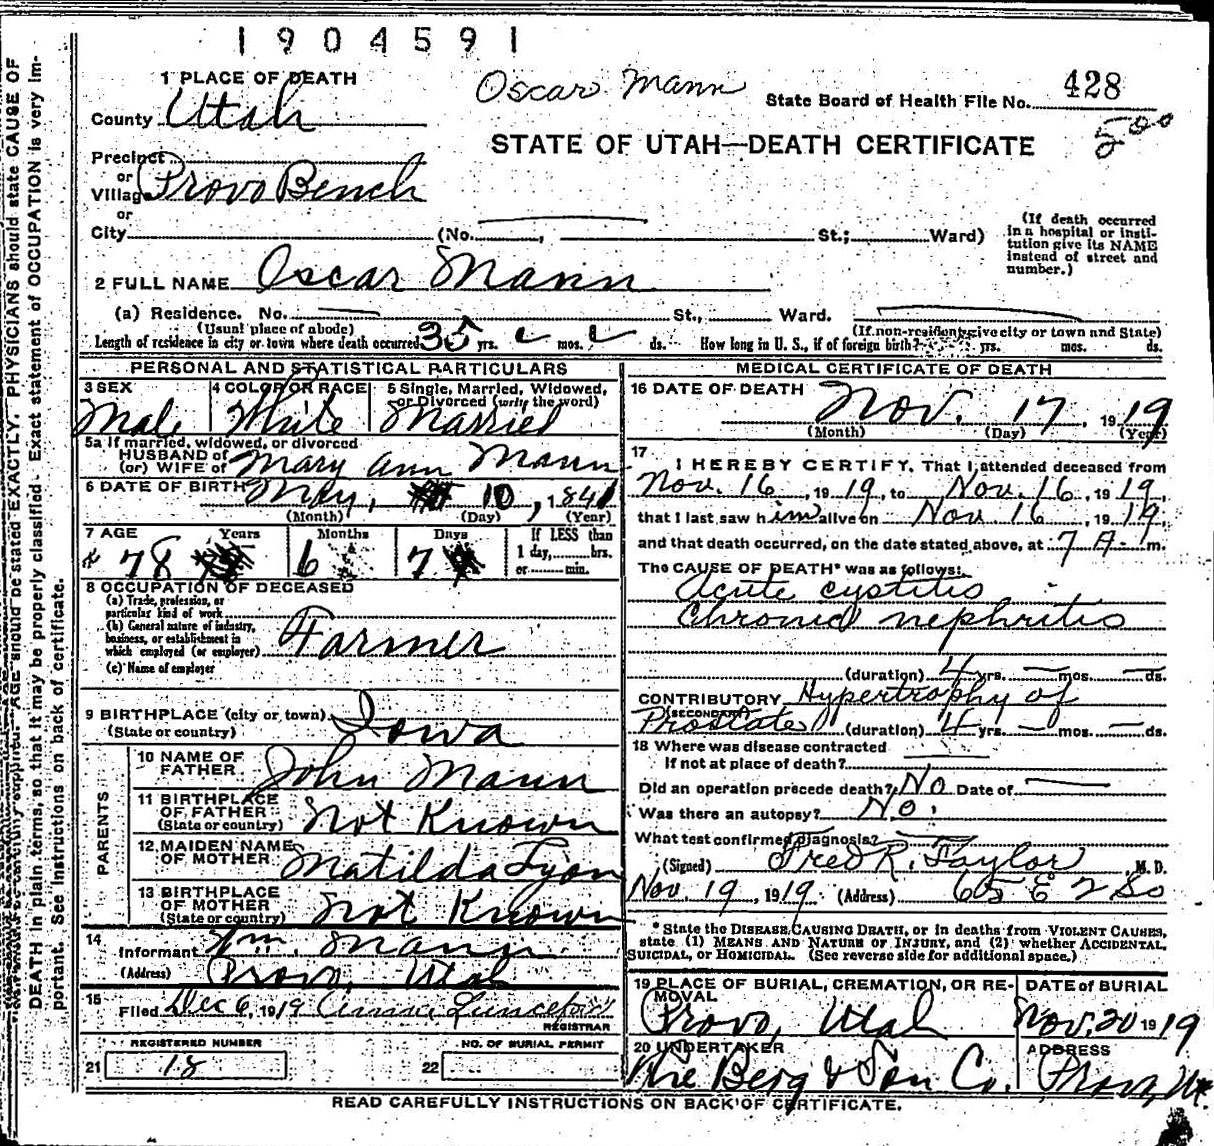 1904591
1 PLACE OF DEATH
Oscar Mann
State Board of Health File No. 428
County Utah
500
STATE OF UTAH—DEATH CERTIFICATE
Precinct
or
Village Provo Bench
or
City (No. , St.; Ward)
(If death occurred in a hospital or institution give its NAME instead of street and number.)
2 FULL NAME Oscar Mann
(a) Residence. No. St., Ward.
(Usual place of abode) (If non-resident give city or town and State)
Length of residence in city or town where death occurred 35 yrs. mos. ds. How long in U. S., if of foreign birth? yrs. mos. ds.
PERSONAL AND STATISTICAL PARTICULARS
3 SEX 4 COLOR OR RACE 5 Single, Married, Widowed,
or Divorced (write the word)
Male White Married
5a If married, widowed, or divorced
HUSBAND of
(or) WIFE of Mary Ann Mann
6 DATE OF BIRTH May, 10, 1841
(Month) (Day) (Year)
7 AGE Years Months Days If LESS than
1 day, hrs.
or min.
78 6 7
8 OCCUPATION OF DECEASED
(a) Trade, profession, or
particular kind of work
(b) General nature of industry,
business, or establishment in
which employed (or employer) Farmer
(c) Name of employer
9 BIRTHPLACE (city or town)
(State or country) Iowa
PARENTS
10 NAME OF
FATHER John Mann
11 BIRTHPLACE
OF FATHER
(State or country) Not Known
12 MAIDEN NAME
OF MOTHER Matilda Lyon
13 BIRTHPLACE
OF MOTHER
(State or country) Not Known
14
Informant Wm. Mann
(Address) Provo, Utah
15
Filed Dec 6, 1919
REGISTRAR
REGISTERED NUMBER NO. OF BURIAL PERMIT
21 18 22
MEDICAL CERTIFICATE OF DEATH
16 DATE OF DEATH Nov. 17 1919
(Month) (Day) (Year)
17
I HEREBY CERTIFY, That I attended deceased from
Nov. 16, 1919, to Nov. 16, 1919,
that I last saw him alive on Nov 16, 1919,
and that death occurred, on the date stated above, at 7 A. m.
The CAUSE OF DEATH* was as follows:
Acute cystitis
Chronic nephritis
(duration) 4 yrs. mos. ds.
CONTRIBUTORY Hypertrophy of
(SECONDARY)
Prostate (duration) 4 yrs. mos. ds.
18 Where was disease contracted
If not at place of death?
Did an operation precede death? No Date of
Was there an autopsy? No.
What test confirmed diagnosis?
(Signed) Fred R. Taylor M. D.
Nov. 19, 1919. (Address) 65 E 2 So
* State the DISEASE CAUSING DEATH, or in deaths from VIOLENT CAUSES,
state (1) MEANS AND NATURE OF INJURY, and (2) whether ACCIDENTAL,
SUICIDAL, or HOMICIDAL. (See reverse side for additional space.)
19 PLACE OF BURIAL, CREMATION, OR RE- DATE of BURIAL
MOVAL
Provo, Utah Nov. 20 1919
20 UNDERTAKER ADDRESS
The Berg & Son Co. Provo, Ut.
READ CAREFULLY INSTRUCTIONS ON BACK OF CERTIFICATE.
AGE should be stated EXACTLY. PHYSICIANS should state CAUSE OF
DEATH in plain terms, so that it may be properly classified. Exact statement of OCCUPATION is very im-
portant. See instructions on back of certificate.